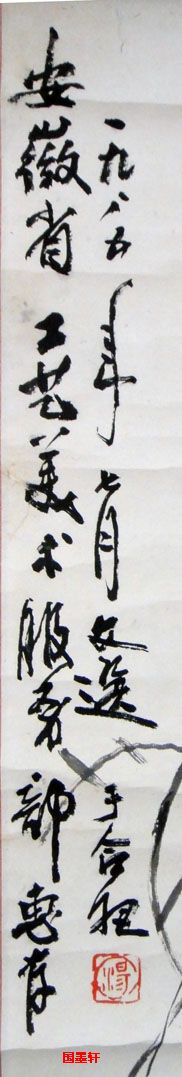 一九八五年七月文选于合肥
安徽省工艺美术服务部惠存
汤
国墨轩